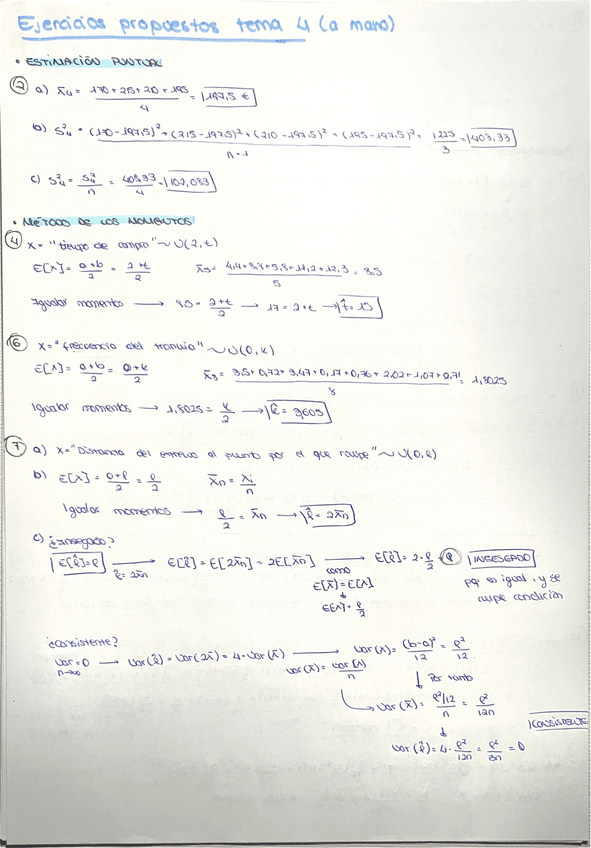 Ejercicios propuestos tema 4 (a mano)
• ESTIMACIÓN PUNTUAL
② a) x̄₄ = (170 + 215 + 210 + 195)/4 = 197,5 €
b) S²₄ = ((170-197,5)² + (215-197,5)² + (210-197,5)² + (195-197,5)²)/(n-1) = 1225/3 = 408,33
c) S²₄ = S²₄/n = 408,33/4 = 102,083
• MÉTODO DE LOS MOMENTOS
④ X = "tiempo de compra" ~ U(2, t)
E[X] = (a+b)/2 = (2+t)/2 x̄₅ = (4,4 + 8,8 + 5,8 + 11,2 + 12,3)/5 = 8,5
Igualar momentos → 8,5 = (2+t)/2 → 17 = 2+t → t̂ = 15
⑥ X = "frecuencia del tranvía" ~ U(0, k)
E[X] = (a+b)/2 = (0+k)/2 x̄₈ = (3,5 + 0,72 + 3,47 + 0,17 + 0,76 + 2,02 + 1,07 + 2,71)/8 = 1,8025
Igualar momentos → 1,8025 = k/2 → k̂ = 3,605
⑦ a) X = "Distancia del extremo al punto por el que rompe" ~ U(0, ℓ)
b) E[X] = (0+ℓ)/2 = ℓ/2 x̄n = xi/n
Igualar momentos → ℓ/2 = x̄n → ℓ̂ = 2x̄n
c) ¿Insesgado?
E[ℓ̂] = ℓ → ℓ̂ = 2x̄n E[ℓ̂] = E[2x̄n] = 2E[x̄n] → como E[ℓ̂] = 2·ℓ/2 = ℓ INSESGADO
E[x̄] = E[X]
↓
E[X] = ℓ/2
es igual, y se
cumple condición
¿Consistente?
Var = 0 n→∞ → Var(ℓ̂) = Var(2x̄) = 4·Var(x̄) → Var(x̄) = Var(X)/n Var(X) = (b-a)²/12 = ℓ²/12
↓ Por tanto
Var(x̄) = (ℓ²/12)/n = ℓ²/12n
↓
CONSISTENTE
Var(ℓ̂) = 4·ℓ²/12n = ℓ²/3n = 0